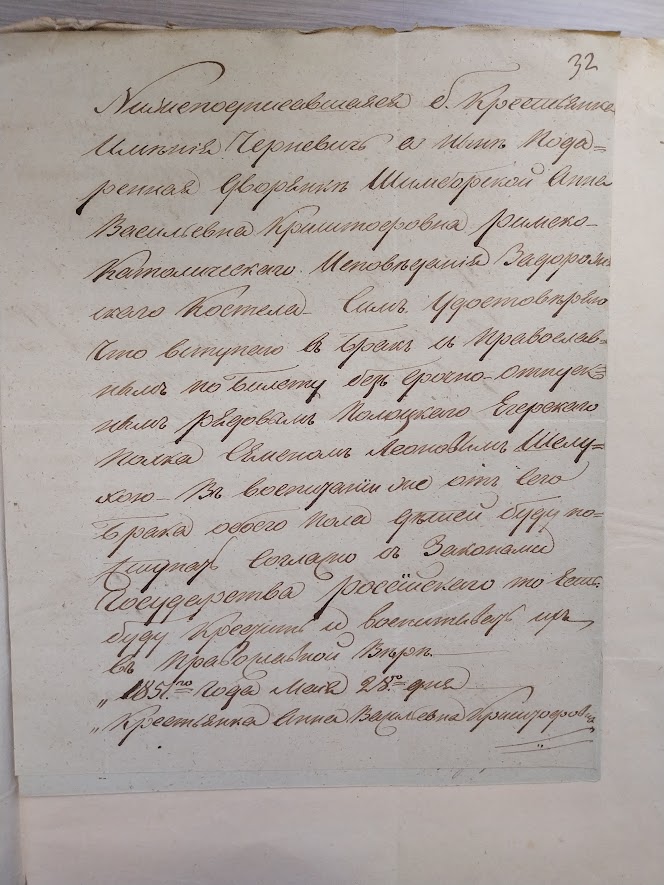 32
Нижеподписавшаяся б. Крестьянка
Имѣнія Черневичь а Нынѣ Пода=
ренная Дворянкѣ Шимборской Анна
Васильевна Криштоеровна римско-
Католическаго Исповѣданія Задорож
скаго Костела Симъ Удостовѣряю
Что вступаю въ Бракъ съ Православ-
нымъ по Билету безъ срочно-отпуск
нымъ рядовымъ Полоцкаго Егерскаго
Полка Сѣменомъ Леоновымъ Шелу=
хою Въ воспитаніи же отъ сего
Брака обоего Пола дѣтей буду по-
ступать Согласно съ Законами
Государства россійскаго то Есть
буду Крестить и воспитывать ихъ
въ Православной Вѣрѣ
„1851го Года Мая 28го дня
„Крестьянка Анна Васильевна Криштофровна